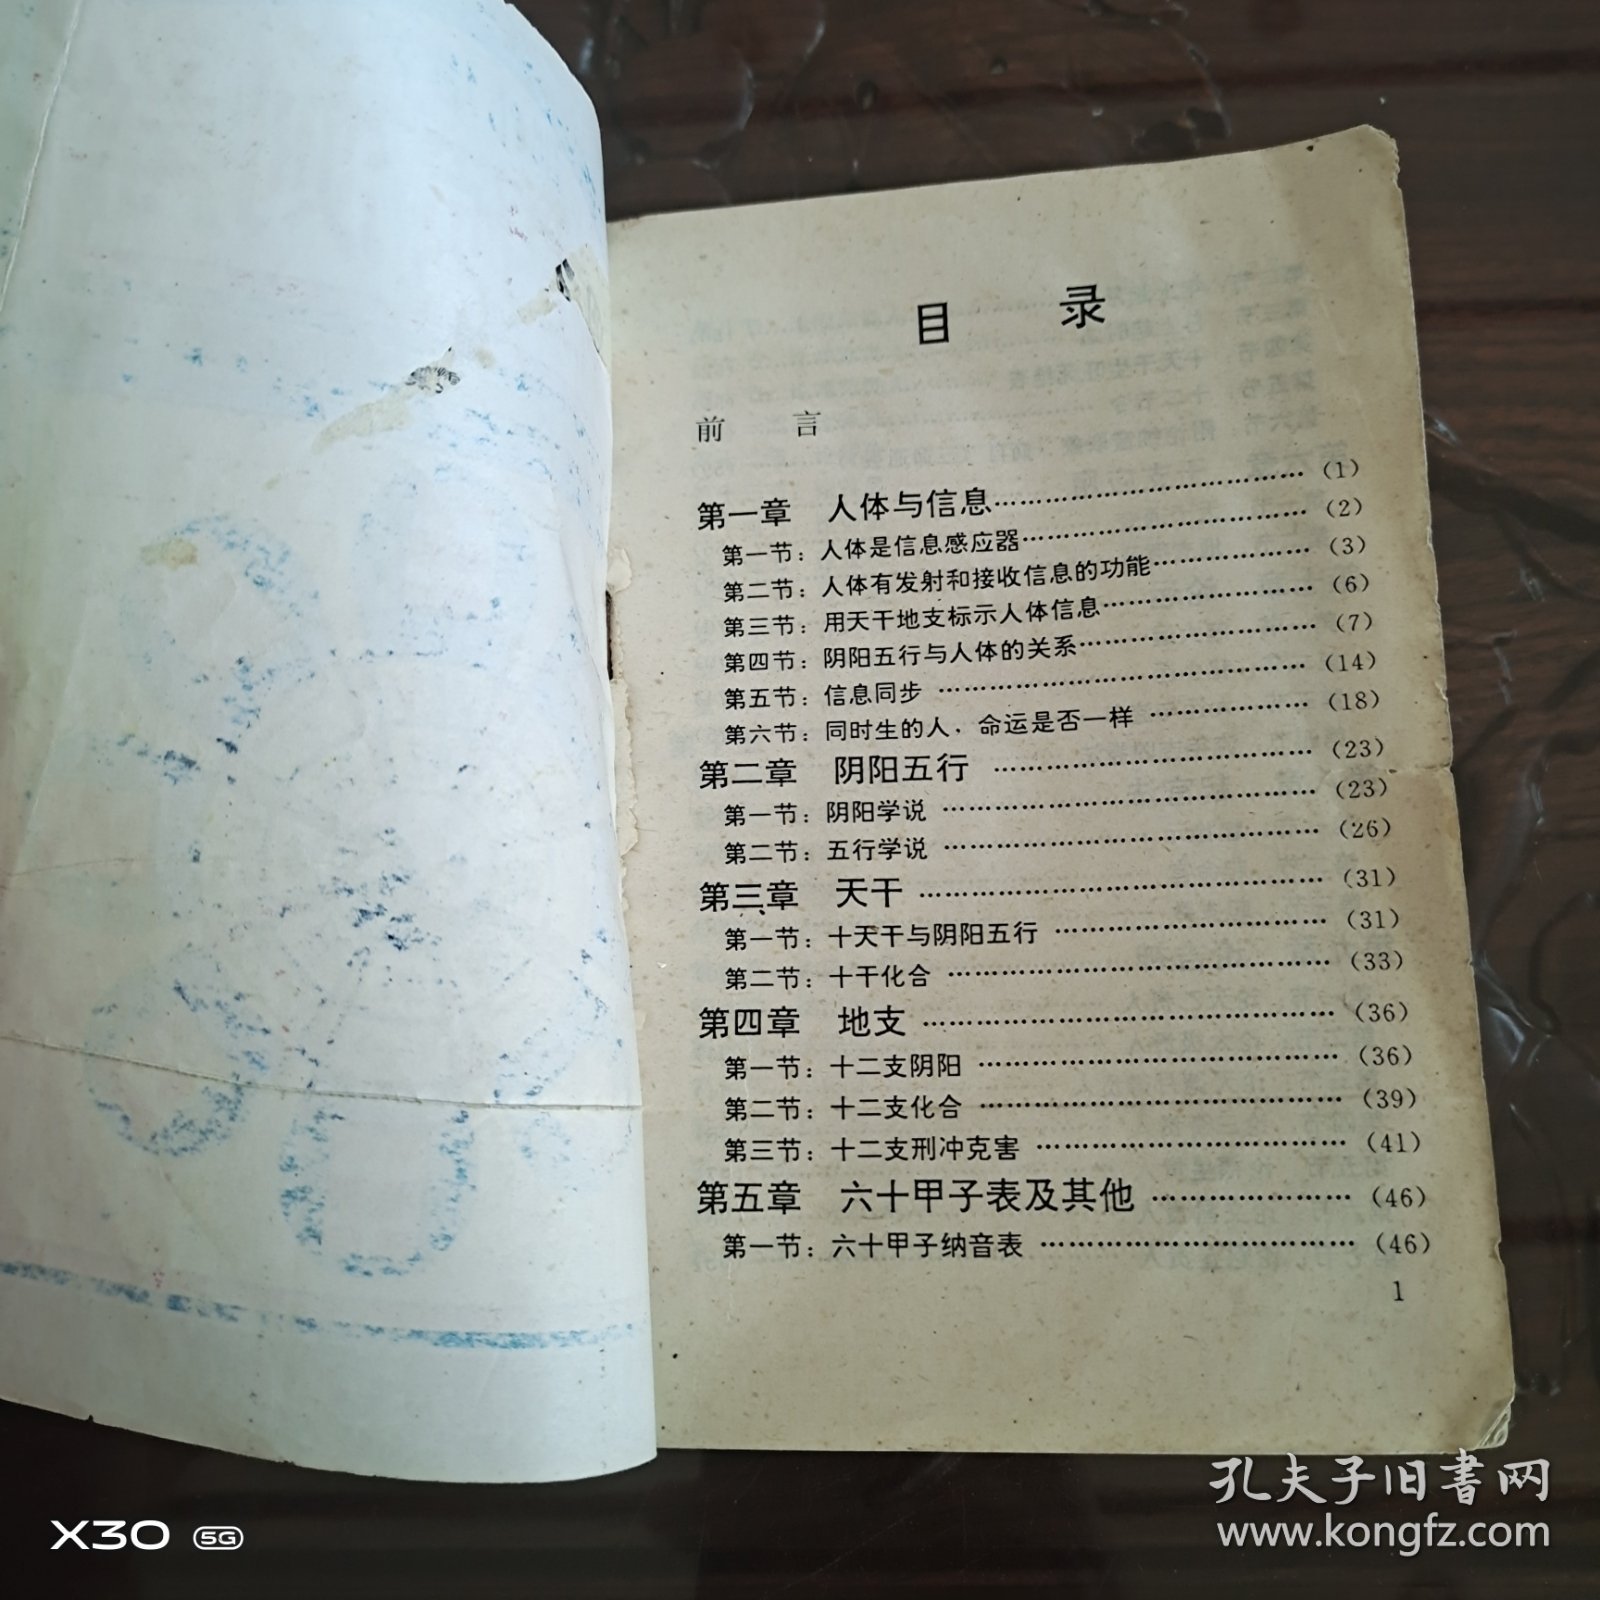 目 录
前 言
第一章 人体与信息…………………………………(1)
第一节：人体是信息感应器…………………………………(2)
第二节：人体有发射和接收信息的功能………………(3)
第三节：用天干地支标示人体信息……………………(6)
第四节：阴阳五行与人体的关系………………………(7)
第五节：信息同步 …………………………………(14)
第六节：同时生的人，命运是否一样 ………………(18)
第二章 阴阳五行 ……………………………(23)
第一节：阴阳学说 …………………………………(23)
第二节：五行学说 …………………………………(26)
第三章 天干 ……………………………………(31)
第一节：十天干与阴阳五行 ………………………(31)
第二节：十干化合 …………………………………(33)
第四章 地支 ……………………………………(36)
第一节：十二支阴阳 ………………………………(36)
第二节：十二支化合 ………………………………(39)
第三节：十二支刑冲克害 …………………………(41)
第五章 六十甲子表及其他 …………………(46)
第一节：六十甲子纳音表 …………………………(46)
1
孔夫子旧书网
www.kongfz.com
X30 5G